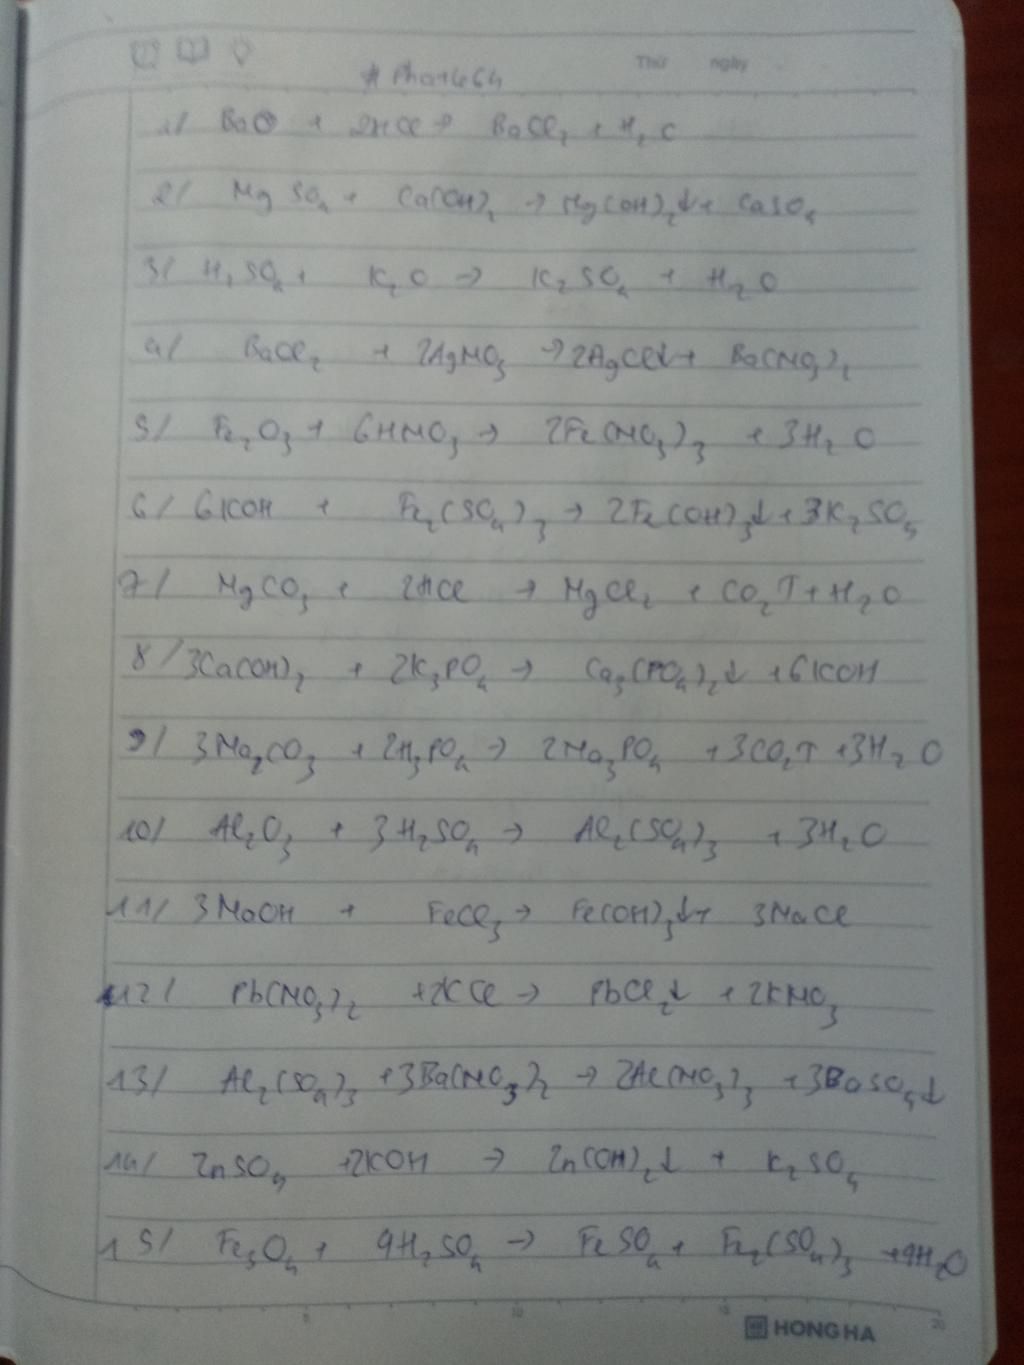 Thứ ngày
1/ BaO + 2HCl → BaCl₂ + H₂O
2/ MgSO₄ + Ca(OH)₂ → Mg(OH)₂↓ + CaSO₄
3/ H₂SO₄ + K₂O → K₂SO₄ + H₂O
4/ BaCl₂ + 2AgNO₃ → 2AgCl↓ + Ba(NO₃)₂
5/ Fe₂O₃ + 6HNO₃ → 2Fe(NO₃)₃ + 3H₂O
6/ 6KOH + Fe₂(SO₄)₃ → 2Fe(OH)₃↓ + 3K₂SO₄
7/ MgCO₃ + 2HCl → MgCl₂ + CO₂↑ + H₂O
8/ 3Ca(OH)₂ + 2K₃PO₄ → Ca₃(PO₄)₂↓ + 6KOH
9/ 3Na₂CO₃ + 2H₃PO₄ → 2Na₃PO₄ + 3CO₂↑ + 3H₂O
10/ Al₂O₃ + 3H₂SO₄ → Al₂(SO₄)₃ + 3H₂O
11/ 3NaOH + FeCl₃ → Fe(OH)₃↓ + 3NaCl
12/ Pb(NO₃)₂ + 2KCl → PbCl₂↓ + 2KNO₃
13/ Al₂(SO₄)₃ + 3Ba(NO₃)₂ → 2Al(NO₃)₃ + 3BaSO₄↓
14/ ZnSO₄ + 2KOH → Zn(OH)₂↓ + K₂SO₄
15/ Fe₃O₄ + 4H₂SO₄ → FeSO₄ + Fe₂(SO₄)₃ + 4H₂O
5 10 15 20
HONG HA